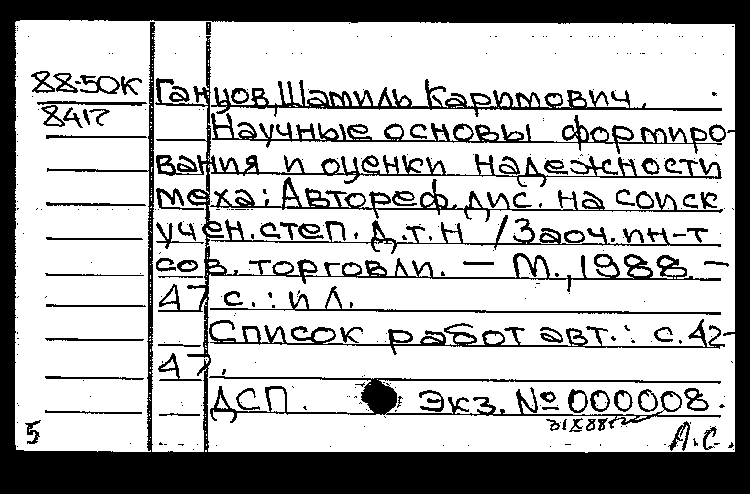 88-50К
8417
Ганцов, Шамиль Каримович.
Научные основы формиро-
вания и оценки надежности
меха: Автореф. дис. на соиск
учен. степ. д.т.н /Заоч. ин-т
сов. торговли. — М., 1988. —
47 с. : ил.
Список работ авт.: с. 42-
47.
ДСП. Экз. № 000008.
5
А.С.